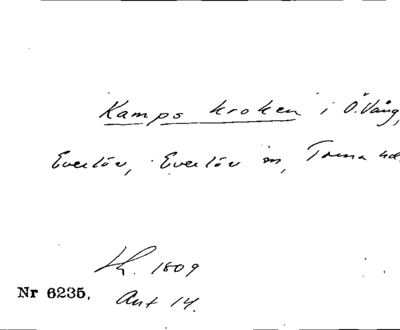 Kamps kroken i Ö. Vång,
Everlöv, Everlöv sn, Torna hd.
Lh. 1809
Nr 6235. Akt 14.